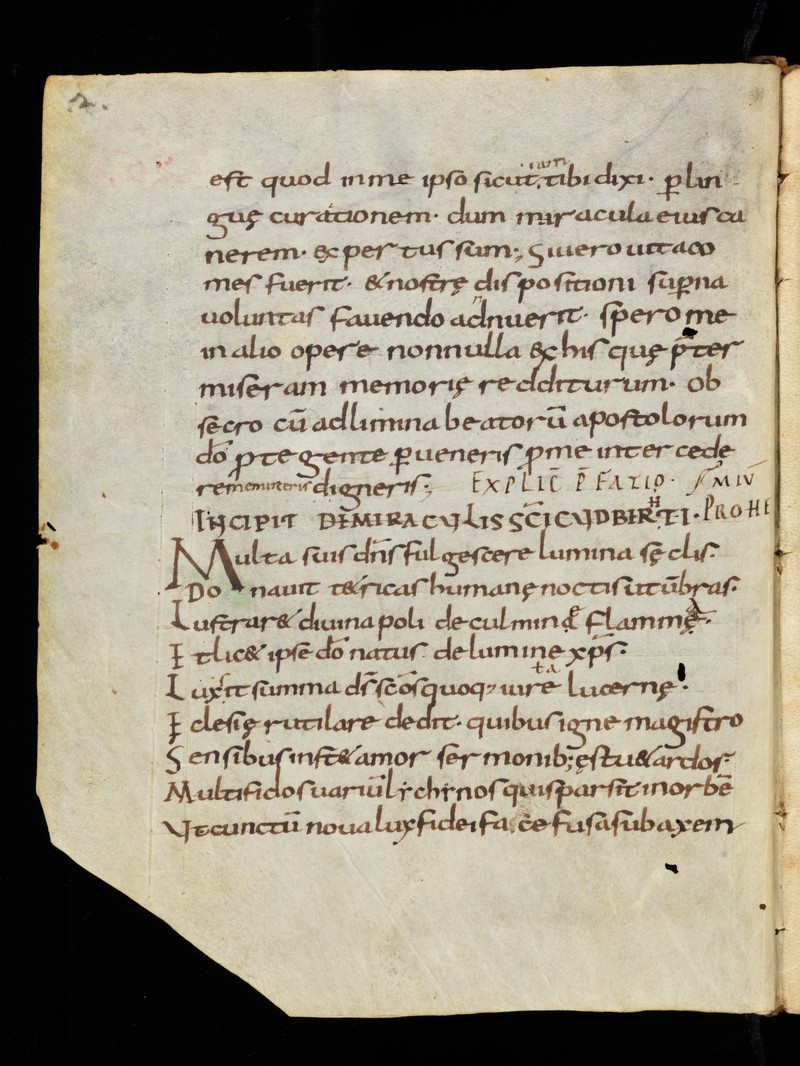 2.
est quod in me ipso sicut, iam tibi dixi · p̱ lin
guę curationem · dum miracula eius ca
nerem · expertus sum ; Si uero uita co
mes fuerit · & nostrę dispositioni sup̱na
uoluntas fauendo adnuerit · spero me
in alio opere nonnulla ex his quę p̄ter
miseram memorię redditurum · ob
secro cū ad limina beatorū apostolorum
dō p̄tegente p̱ueneris p̱ me intercede
re memineris digneris ; EXPLIC̄ P̄FATIO ·
INCIPIT DE MIRACULIS SC̄I CUDBERHTI · PROHE
Multa suis dn̄s fulgescere lumina sęclis ·
Donauit tetricas humanę noctis ut ūbras ·
Lustrar& diuina poli de culmine flamma ·
Et lic& ipse dō natus de lumine xp̄s ·
Lux sit summa ds̄ sc̄os quoq; iure lucernę
Eclesię rutilare dedit · quibus igne magistro
Sensibus inst& amor sermonib; ęstu& ardor
Multifidos uariū lychnos qui sparsit in orbē
Ut cunctū noua lux fidei face fusa sub axem